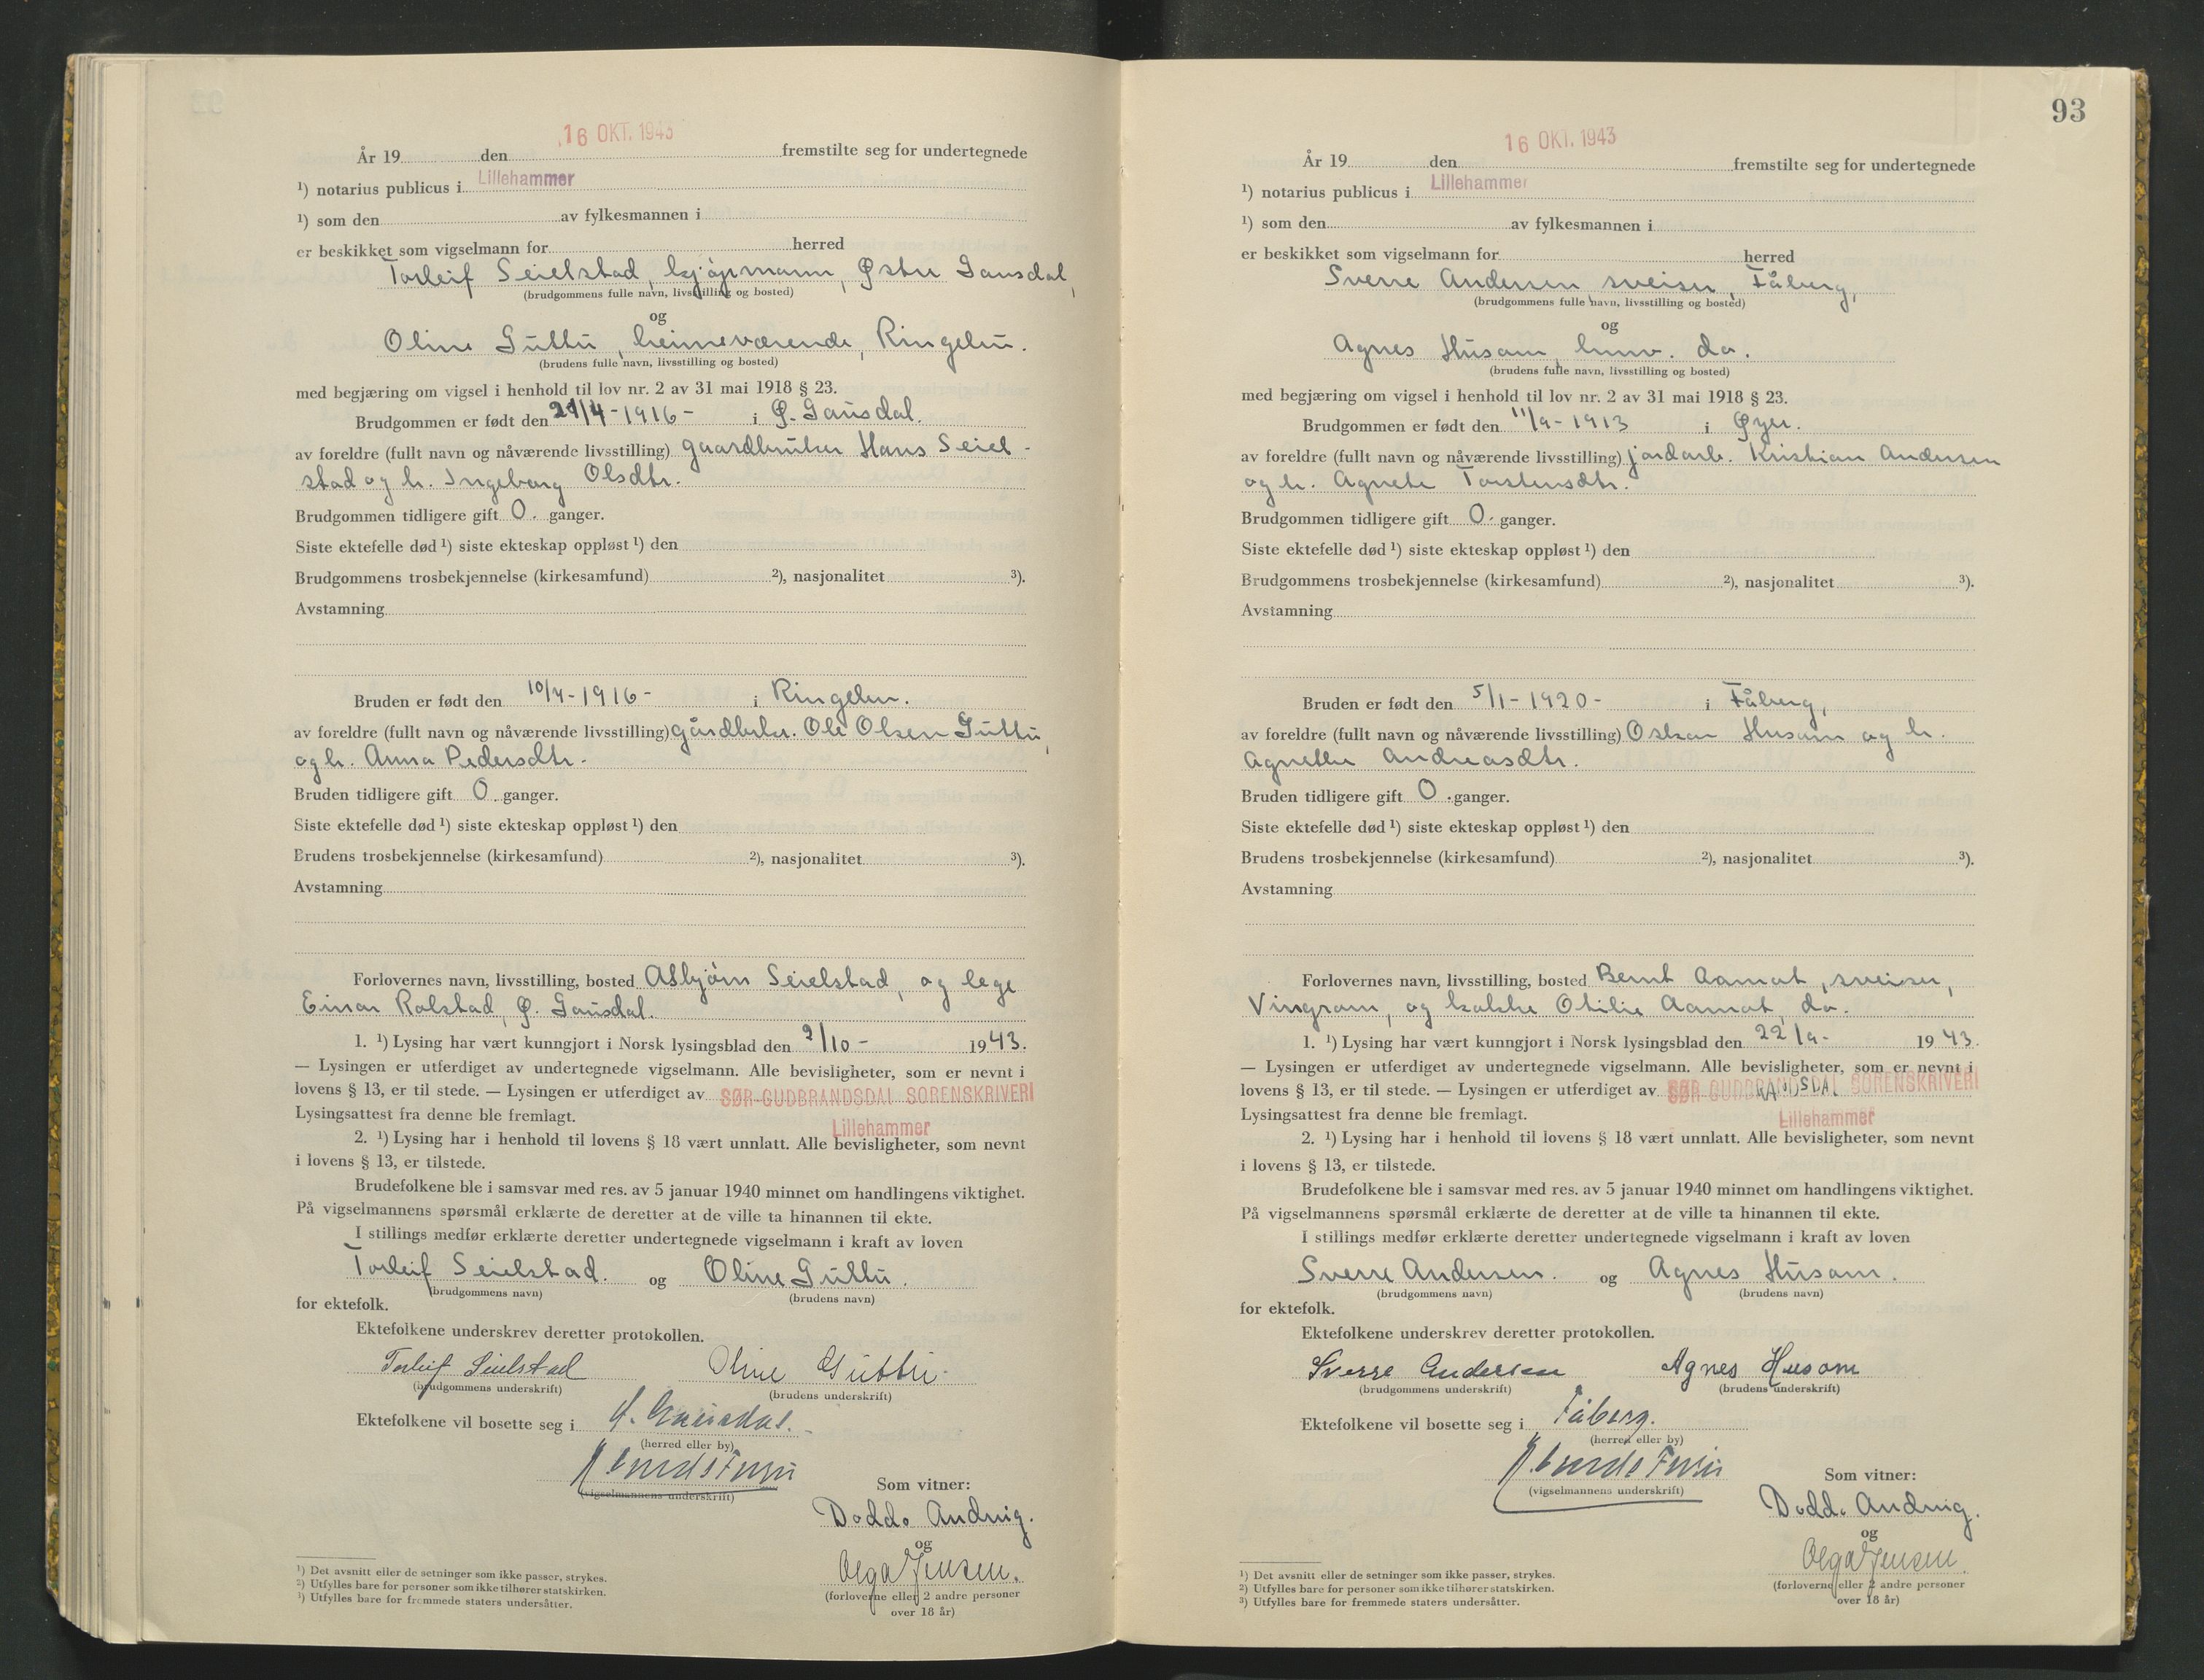 16 OKT. 1943
År 19 den fremstilte seg for undertegnede
¹) notarius publicus i Lillehammer
¹) som den av fylkesmannen i
er beskikket som vigselmann for herred
Torleif Seielstad, kjøpmann, Østre Gausdal,
(brudgommens fulle navn, livsstilling og bosted)
og
Oline Guttu, heimeværende, Ringebu.
(brudens fulle navn, livsstilling og bosted)
med begjæring om vigsel i henhold til lov nr. 2 av 31 mai 1918 § 23.
Brudgommen er født den /4-1916- i Ø. Gausdal.
av foreldre (fullt navn og nåværende livsstilling) gaardbruker Hans Seiel-
stad og h. Ingeborg Olsdtr.
Brudgommen tidligere gift 0. ganger.
Siste ektefelle død ¹) siste ekteskap oppløst ¹) den
Brudgommens trosbekjennelse (kirkesamfund) ²), nasjonalitet ³).
Avstamning
Bruden er født den 10/4-1916- i Ringebu.
av foreldre (fullt navn og nåværende livsstilling) gårdbrkr. Ole Olsen Guttu,
og h. Anna Pedersdtr.
Bruden tidligere gift 0. ganger.
Siste ektefelle død ¹) siste ekteskap oppløst ¹) den
Brudens trosbekjennelse (kirkesamfund) ²), nasjonalitet ³).
Avstamning
Forlovernes navn, livsstilling, bosted Asbjørn Seielstad, og lege
Einar Rolstad, Ø. Gausdal.
1. ¹) Lysing har vært kunngjort i Norsk lysingsblad den 9/10- 1943.
— Lysingen er utferdiget av undertegnede vigselmann. Alle bevisligheter, som er nevnt i
lovens § 13, er til stede. — Lysingen er utferdiget av SØR-GUDBRANDSDAL SORENSKRIVERI
Lysingsattest fra denne ble fremlagt.
Lillehammer
2. ¹) Lysing har i henhold til lovens § 18 vært unnlatt. Alle bevisligheter, som nevnt
i lovens § 13, er tilstede.
Brudefolkene ble i samsvar med res. av 5 januar 1940 minnet om handlingens viktighet.
På vigselmannens spørsmål erklærte de deretter at de ville ta hinannen til ekte.
I stillings medfør erklærte deretter undertegnede vigselmann i kraft av loven
Torleif Seielstad. og Oline Guttu.
(brudgommens navn) (brudens navn)
for ektefolk.
Ektefolkene underskrev deretter protokollen.
Torleif Seielstad Oline Guttu
(brudgommens underskrift) (brudens underskrift)
Ektefolkene vil bosette seg i Ø. Gausdal.
(herred eller by)
(vigselmannens underskrift)
Som vitner:
Doddo Andvig.
og
Olga Jensen.
(forloverne eller 2 andre personer
over 18 år)
¹) Det avsnitt eller de setninger som ikke passer, strykes.
²) Utfylles bare for personer som ikke tilhører statskirken.
³) Utfylles bare for fremmede staters undersåtter.
93
16 OKT. 1943
År 19 den fremstilte seg for undertegnede
¹) notarius publicus i Lillehammer
¹) som den av fylkesmannen i
er beskikket som vigselmann for herred
Sverre Andersen sveiser, Fåberg,
(brudgommens fulle navn, livsstilling og bosted)
og
Agnes Husom, hmv. do.
(brudens fulle navn, livsstilling og bosted)
med begjæring om vigsel i henhold til lov nr. 2 av 31 mai 1918 § 23.
Brudgommen er født den 11/9-1913 i Øyer.
av foreldre (fullt navn og nåværende livsstilling) jordarb. Kristian Andersen
og h. Agnete Torstensdtr.
Brudgommen tidligere gift 0. ganger.
Siste ektefelle død ¹) siste ekteskap oppløst ¹) den
Brudgommens trosbekjennelse (kirkesamfund) ²), nasjonalitet ³).
Avstamning
Bruden er født den 5/1-1920- i Fåberg,
av foreldre (fullt navn og nåværende livsstilling) Oskar Husom og h.
Agnethe Andreasdtr.
Bruden tidligere gift 0. ganger.
Siste ektefelle død ¹) siste ekteskap oppløst ¹) den
Brudens trosbekjennelse (kirkesamfund) ²), nasjonalitet ³).
Avstamning
Forlovernes navn, livsstilling, bosted Bernt Aamot, sveiser,
Vingrom, og kokke Otilie Aamot, do.
1. ¹) Lysing har vært kunngjort i Norsk lysingsblad den 22/9- 1943.
— Lysingen er utferdiget av undertegnede vigselmann. Alle bevisligheter, som er nevnt i
lovens § 13, er til stede. — Lysingen er utferdiget av SØR-GUDBRANDSDAL SORENSKRIVERI
Lysingsattest fra denne ble fremlagt.
Lillehammer
2. ¹) Lysing har i henhold til lovens § 18 vært unnlatt. Alle bevisligheter, som nevnt
i lovens § 13, er tilstede.
Brudefolkene ble i samsvar med res. av 5 januar 1940 minnet om handlingens viktighet.
På vigselmannens spørsmål erklærte de deretter at de ville ta hinannen til ekte.
I stillings medfør erklærte deretter undertegnede vigselmann i kraft av loven
Sverre Andersen. og Agnes Husom.
(brudgommens navn) (brudens navn)
for ektefolk.
Ektefolkene underskrev deretter protokollen.
Sverre Andersen Agnes Husom
(brudgommens underskrift) (brudens underskrift)
Ektefolkene vil bosette seg i Fåberg.
(herred eller by)
(vigselmannens underskrift)
Som vitner:
Doddo Andvig.
og
Olga Jensen
(forloverne eller 2 andre personer
over 18 år)
¹) Det avsnitt eller de setninger som ikke passer, strykes.
²) Utfylles bare for personer som ikke tilhører statskirken.
³) Utfylles bare for fremmede staters undersåtter.